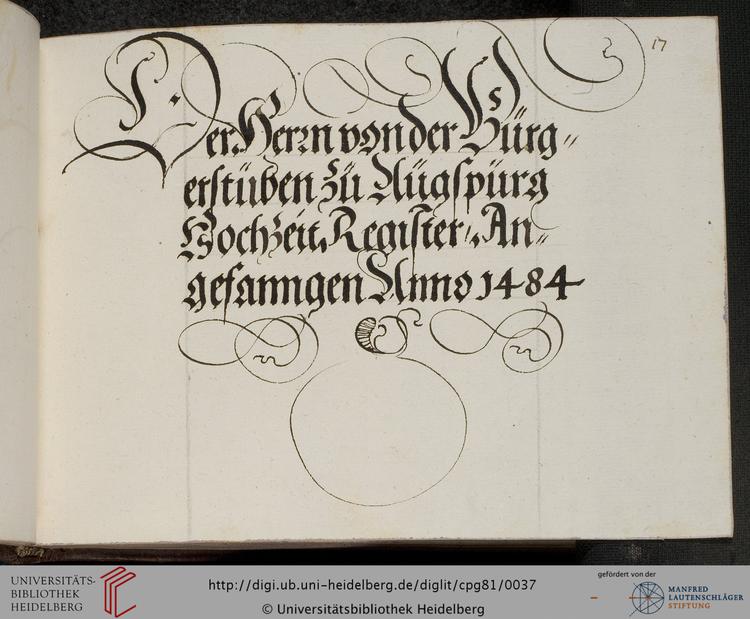 17
Der Herrn von der Bürg⸗
erstuben zů Augspurg
Hochzeit, Register, An⸗
gefanngen Anno 1484
UNIVERSITÄTS-
BIBLIOTHEK
HEIDELBERG
http://digi.ub.uni-heidelberg.de/diglit/cpg81/0037
© Universitätsbibliothek Heidelberg
gefördert von der
MANFRED
LAUTENSCHLÄGER
STIFTUNG